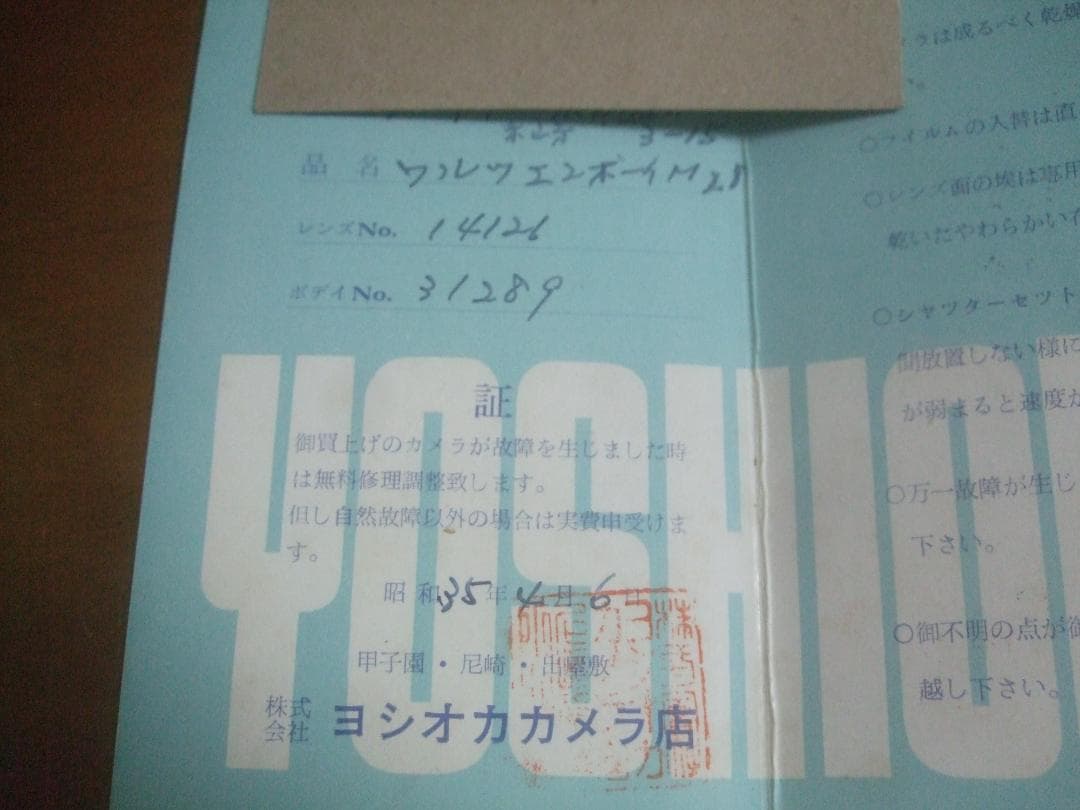 品名 ワルツエンボーイM28
レンズNo. 14126
ボデイNo. 31289
証
御買上げのカメラが故障を生じました時
は無料修理調整致します。
但し自然故障以外の場合は実費申受けま
す。
昭和35年4月6日
甲子園・尼崎・出屋敷
株式会社 ヨシオカカメラ店
YOSHIO
ラは成るべく乾燥
○フイルムの入替は直
○レンズ面の埃は専用
乾いたやわらかい
○シヤツターセツト
間放置しない様に
が弱まると速度が
○万一故障が生じ
下さい。
○御不明の点が御
越し下さい。